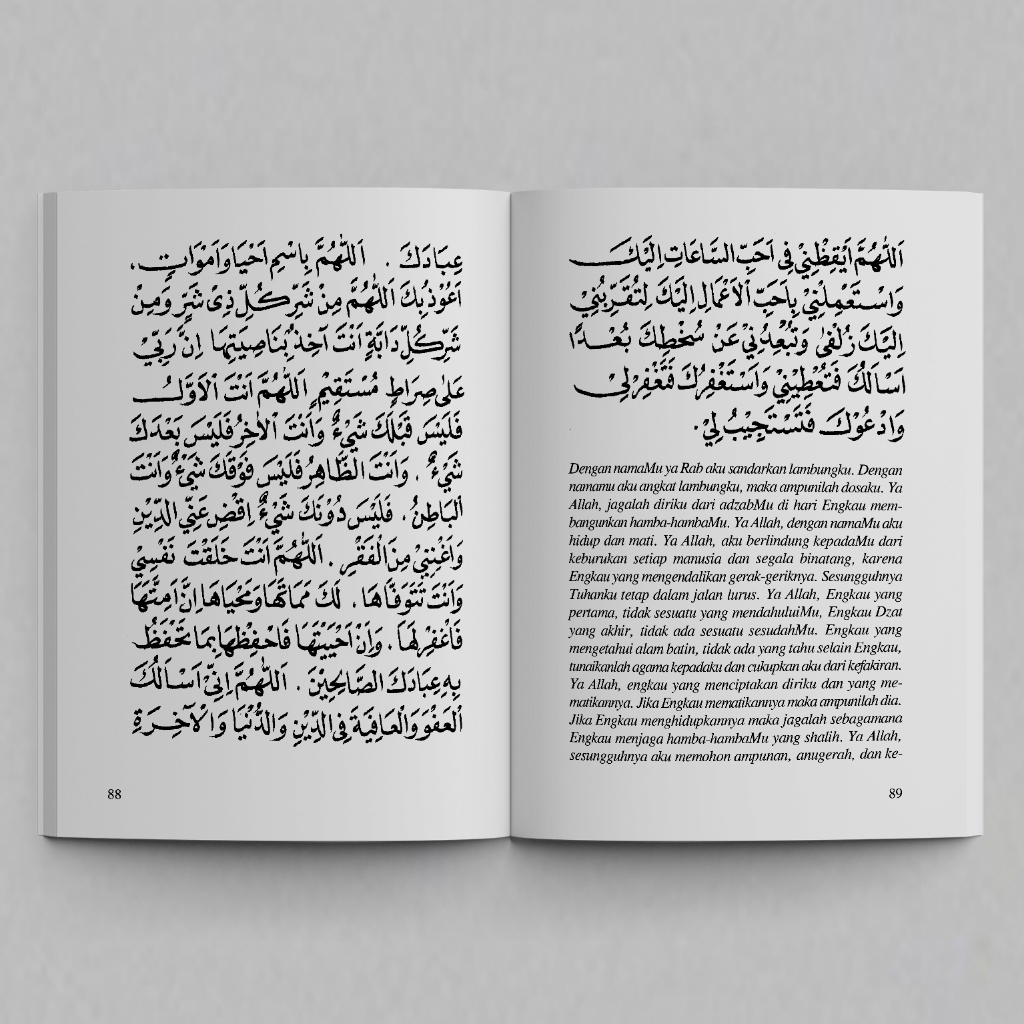 عِبَادَكَ . اَللّٰهُمَّ بِاسْمِ اَحْيَا وَاَمْوَاتٍ،
اَعُوْذُ بِكَ اَللّٰهُمَّ مِنْ شَرِّ كُلِّ ذِىْ شَرٍّ وَمِنْ
شَرِّ كُلِّ دَابَّةٍ اَنْتَ آخِذٌ بِنَاصِيَتِهَا اِنَّ رَبِّيْ
عَلٰى صِرَاطٍ مُسْتَقِيْمٍ اَللّٰهُمَّ اَنْتَ الْاَوَّلُ
فَلَيْسَ قَبْلَكَ شَيْءٌ وَاَنْتَ الْاٰخِرُ فَلَيْسَ بَعْدَكَ
شَيْءٌ . وَاَنْتَ الظَّاهِرُ فَلَيْسَ فَوْقَكَ شَيْءٌ وَاَنْتَ
الْبَاطِنُ . فَلَيْسَ دُوْنَكَ شَيْءٌ اِقْضِ عَنِّي الدِّيْنِ
وَاَغْنِنِيْ مِنَ الْفَقْرِ . اَللّٰهُمَّ اَنْتَ خَلَقْتَ نَفْسِيْ
وَاَنْتَ تَتَوَفَّاهَا . لَكَ مَمَاتُهَا وَمَحْيَاهَا اِنْ اَمَتَّهَا
فَاغْفِرْ لَهَا . وَاِنْ اَحْيَيْتَهَا فَاحْفِظْهَا بِمَا تَحْفَظُ
بِهِ عِبَادَكَ الصَّالِحِيْنَ . اَللّٰهُمَّ اِنِّيْ اَسْاَلُكَ
الْعَفْوَ وَالْعَافِيَةَ فِى الدِّيْنِ وَالدُّنْيَا وَالْآخِرَةِ
88
اَللّٰهُمَّ اَيْقِظْنِيْ فِى اَحَبِّ السَّاعَاتِ اِلَيْكَ
وَاسْتَعْمِلْنِيْ بِاَحَبِّ الْاَعْمَالِ اِلَيْكَ لِتُقَرِّبُنِيْ
اِلَيْكَ زُلْفٰى وَتُبْعِدُنِيْ عَنْ سُخْطِكَ بُعْدًا
اَسْاَلُكَ فَتُعْطِيْنِيْ وَاَسْتَغْفِرُكَ فَتَغْفِرْ لِيْ
وَادْعُوْكَ فَتَسْتَجِيْبُ لِيْ .
Dengan namaMu ya Rab aku sandarkan lambungku. Dengan
namamu aku angkat lambungku, maka ampunilah dosaku. Ya
Allah, jagalah diriku dari adzabMu di hari Engkau mem-
bangunkan hamba-hambaMu. Ya Allah, dengan namaMu aku
hidup dan mati. Ya Allah, aku berlindung kepadaMu dari
keburukan setiap manusia dan segala binatang, karena
Engkau yang mengendalikan gerak-geriknya. Sesungguhnya
Tuhanku tetap dalam jalan lurus. Ya Allah, Engkau yang
pertama, tidak sesuatu yang mendahuluiMu, Engkau Dzat
yang akhir, tidak ada sesuatu sesudahMu. Engkau yang
mengetahui alam batin, tidak ada yang tahu selain Engkau,
tunaikanlah agama kepadaku dan cukupkan aku dari kefakiran.
Ya Allah, engkau yang menciptakan diriku dan yang me-
matikannya. Jika Engkau mematikannya maka ampunilah dia.
Jika Engkau menghidupkannya maka jagalah sebagamana
Engkau menjaga hamba-hambaMu yang shalih. Ya Allah,
sesungguhnya aku memohon ampunan, anugerah, dan ke-
89